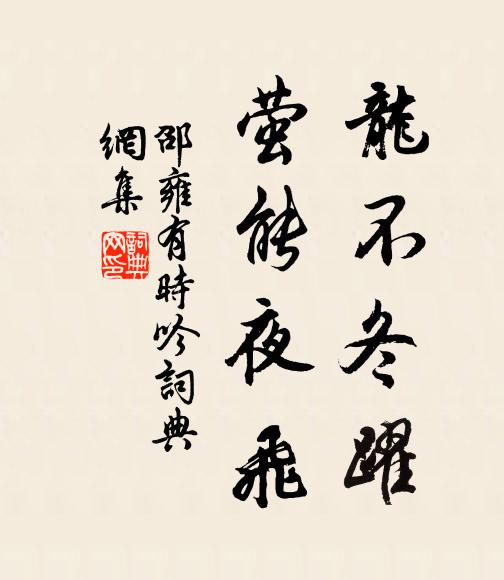 龍不冬躍
萤能夜飛
邵雍有時吟詞典
網集
詞典
网印